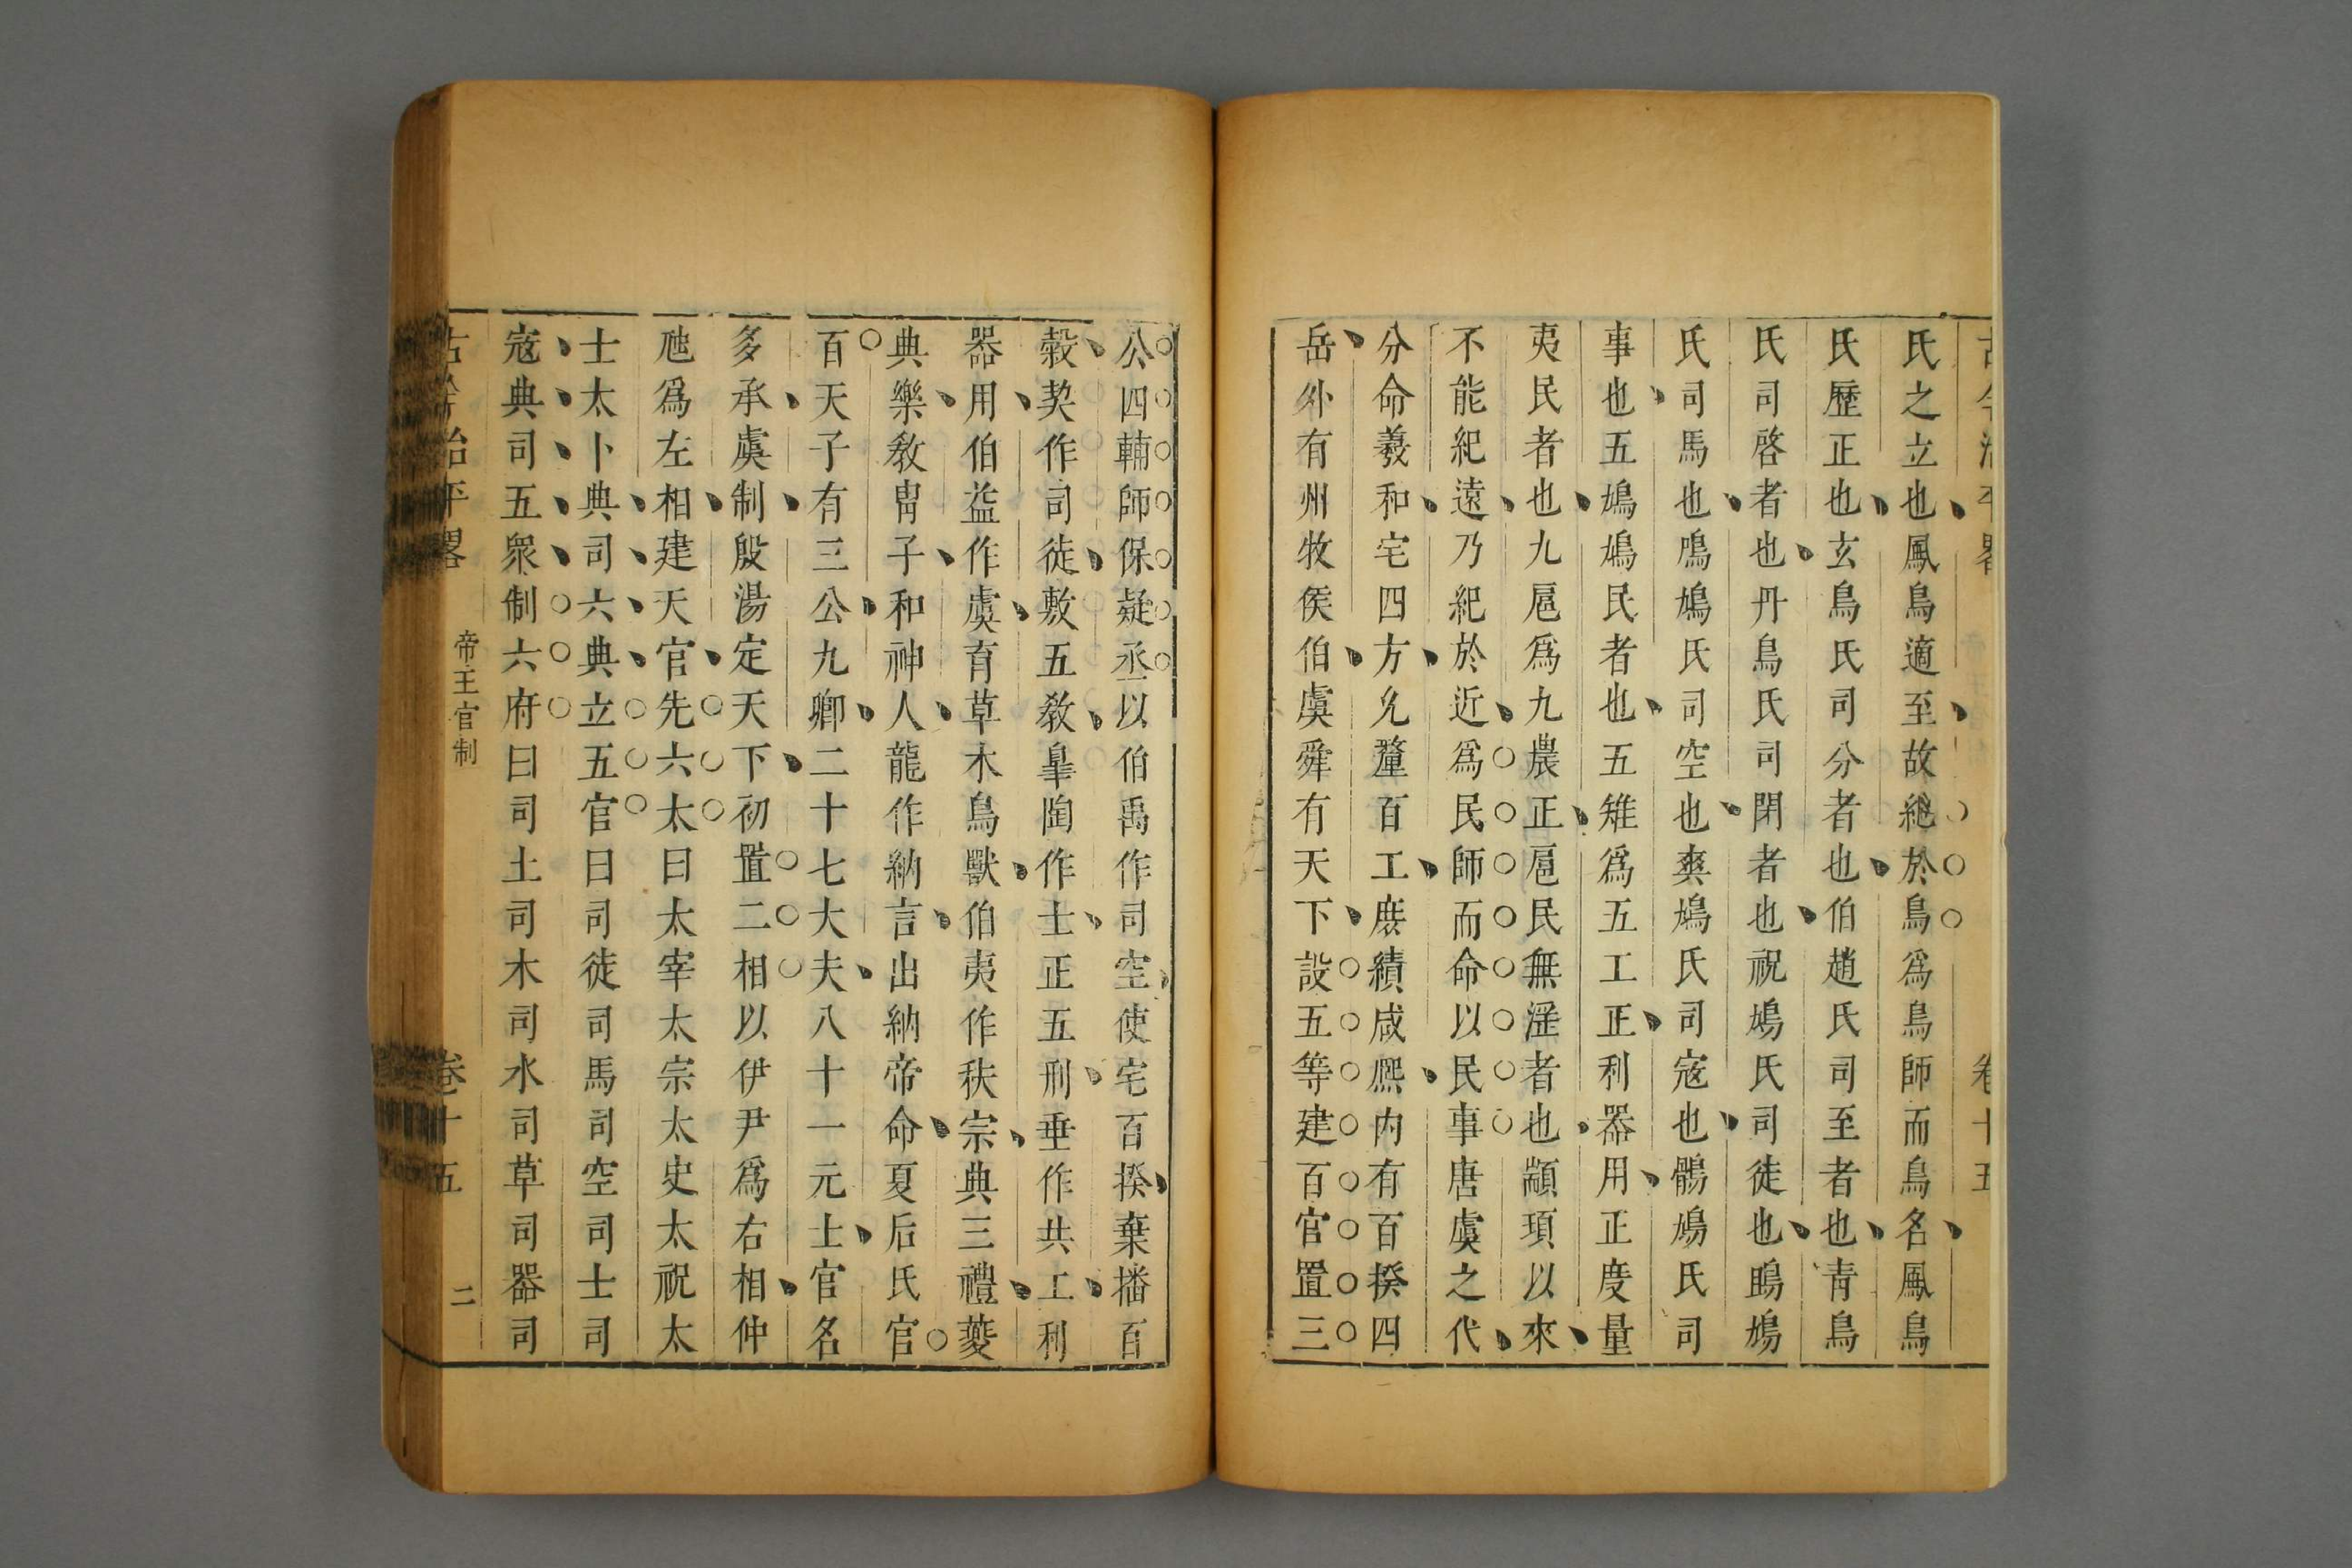 氏之立也鳳鳥適至故紀於鳥爲鳥師而鳥名鳳鳥
氏歷正也玄鳥氏司分者也伯趙氏司至者也青鳥
氏司啓者也丹鳥氏司閉者也祝鳩氏司徒也鴡鳩
氏司馬也鳲鳩氏司空也爽鳩氏司寇也鶻鳩氏司
事也五鳩鳩民者也五雉爲五工正利器用正度量
夷民者也九扈爲九農正扈民無滛者也顓頊以來
不能紀遠乃紀於近爲民師而命以民事唐虞之代
分命羲和宅四方允釐百工庶績咸熈內有百揆四
岳外有州牧侯伯虞舜有天下設五等建百官置三
公四輔師保疑丞以伯禹作司空使宅百揆棄播百
穀契作司徒敷五教皐陶作士正五刑垂作共工利
器用伯益作虞育草木鳥獸伯夷作秩宗典三禮夔
典樂教胄子和神人龍作納言出納帝命夏后氏官
百天子有三公九卿二十七大夫八十一元士官名
多承虞制殷湯定天下初置二相以伊尹爲右相仲
虺爲左相建天官先六太曰太宰太宗太史太祝太
士太卜典司六典立五官曰司徒司馬司空司士司
寇典司五衆制六府曰司土司木司水司草司器司
古今治平畧 帝王官制 卷十五 二